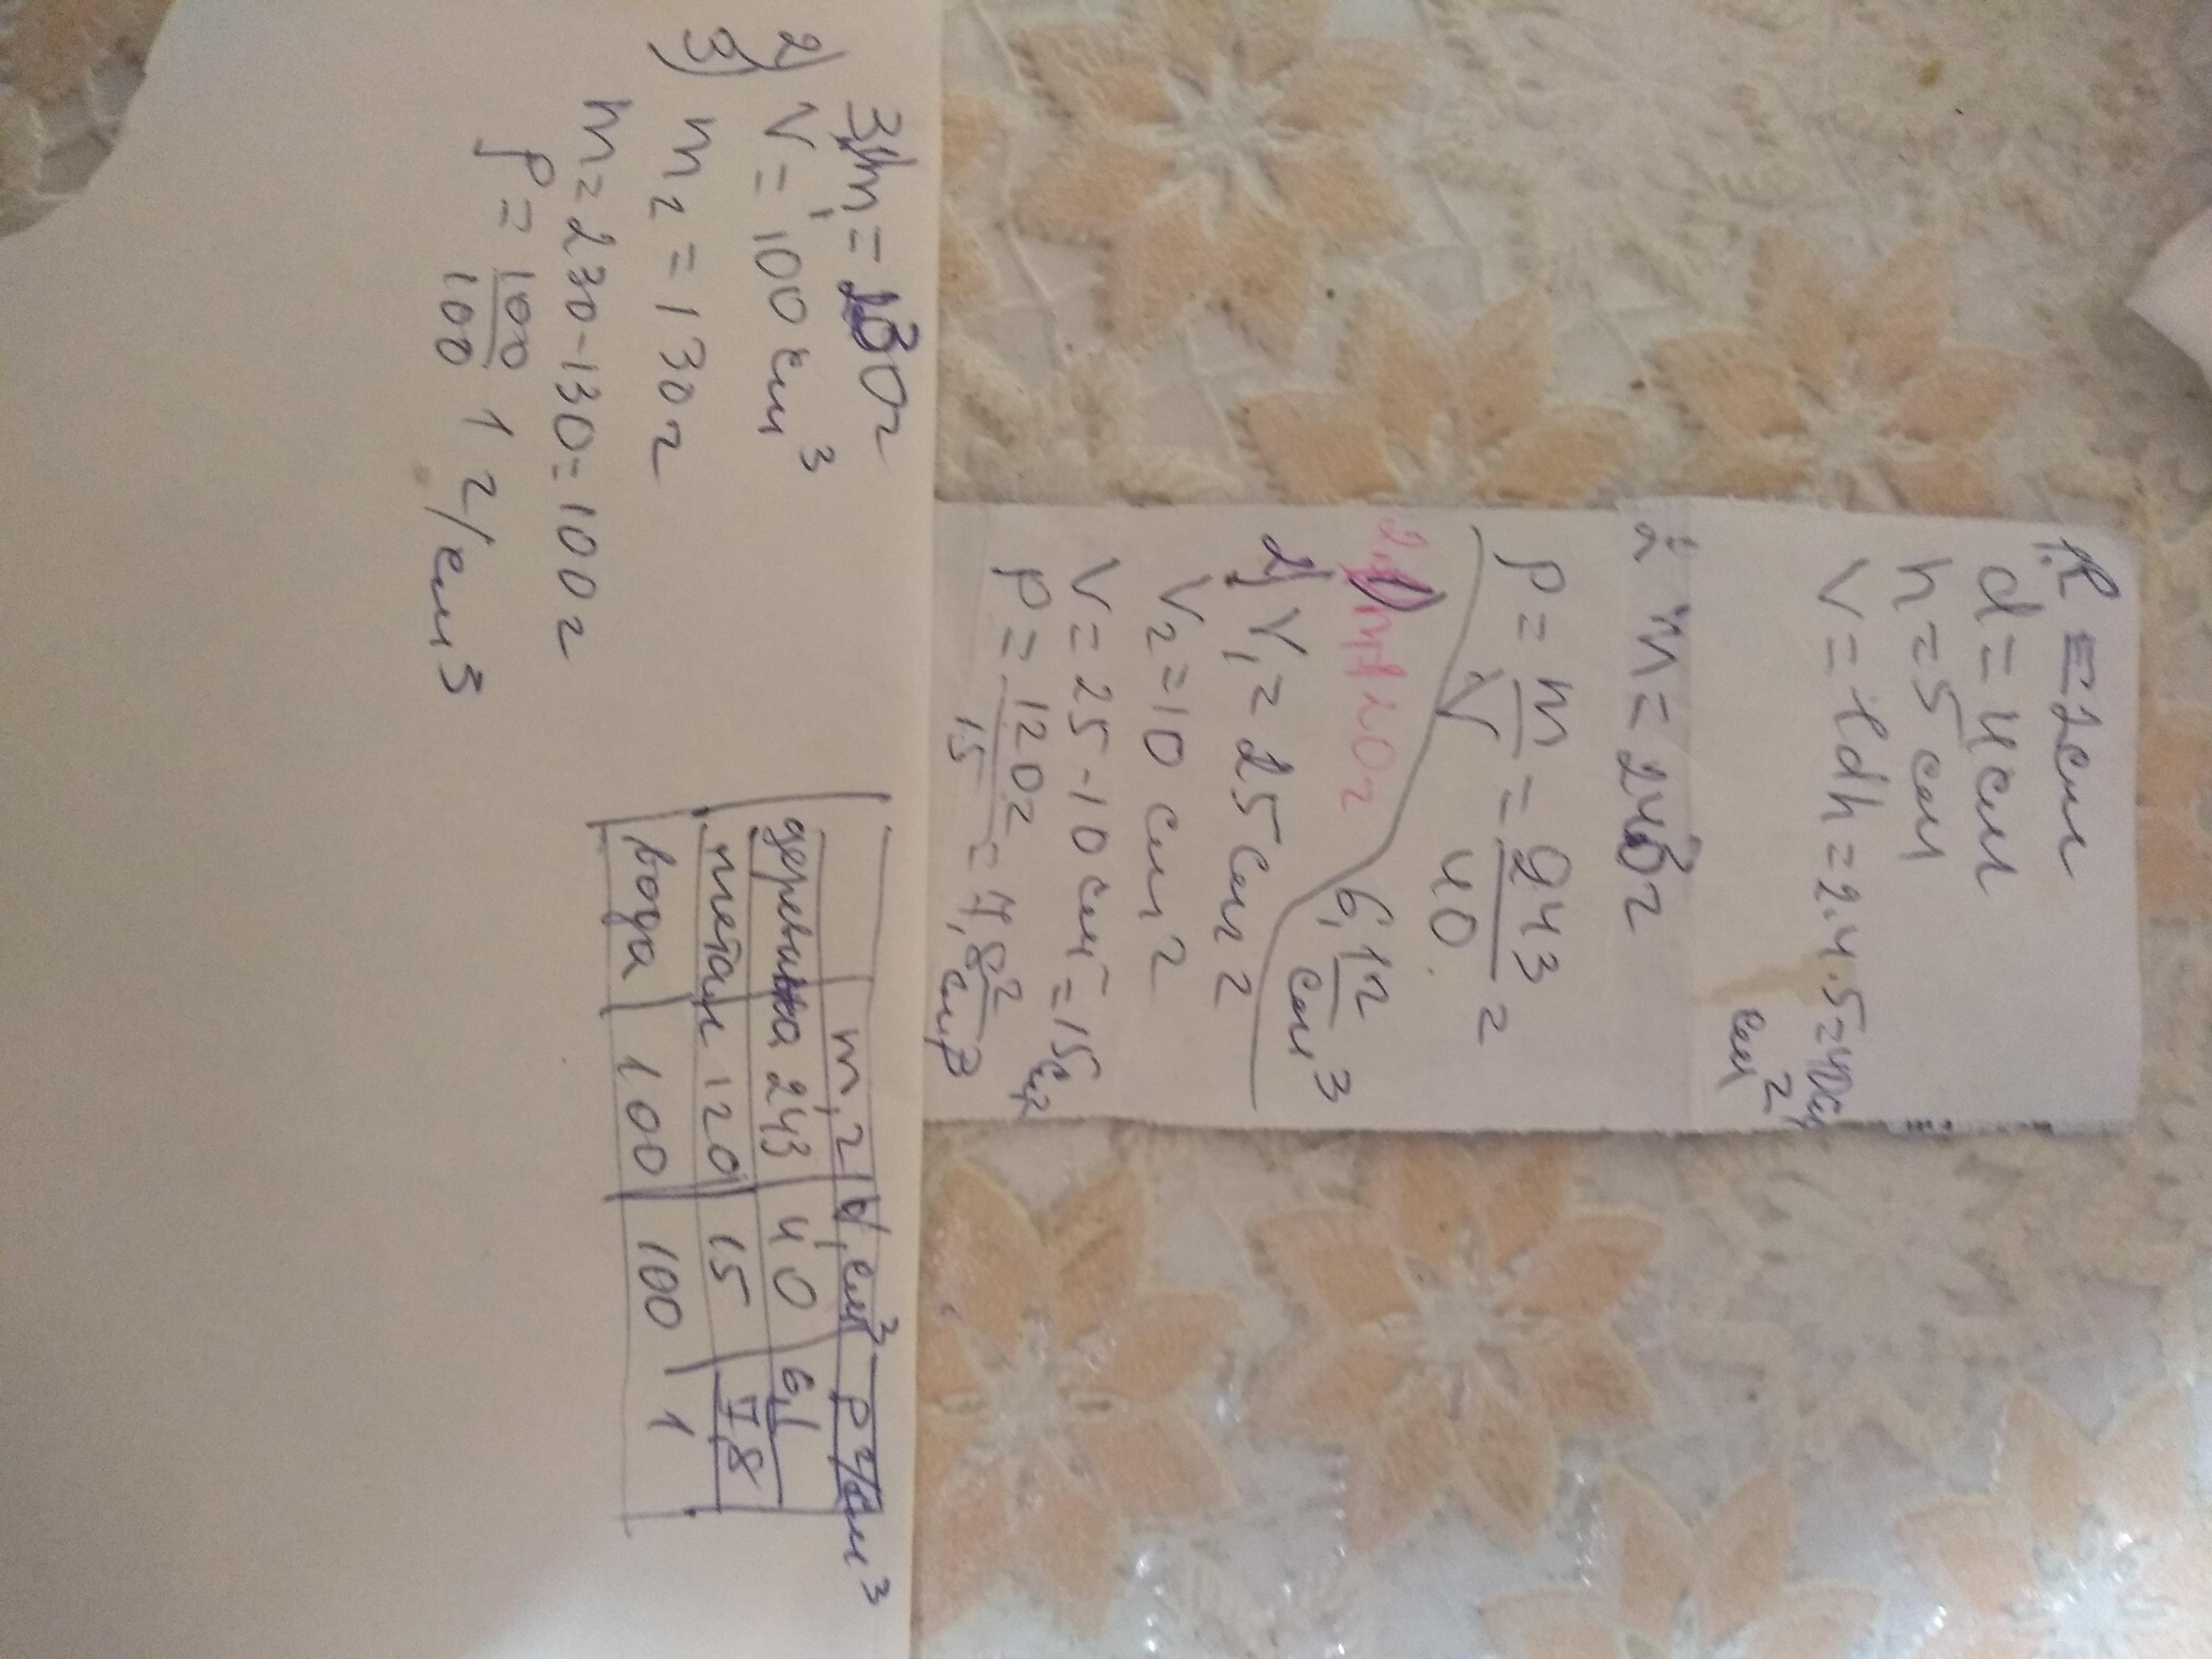 1. l = 2см
d = 4см
h = 5 см
V = ldh = 2·4·5=40см
см²
m = 243г
ρ = m/V = 243/40 =
6,1г/см³
2. m=120г
2) V₁ = 25 см²
V₂ = 10 см²
V = 25 - 10 см = 15см²
ρ = 120г/15 = 7,8 г/см³
3) m₁ = 230г
2) V = 100 см³
3) m₂ = 130г
m = 230-130=100г
ρ = 100/100 1 г/см³
m, г V, см³ ρ г/см³
деревина 243 40 6,1
метал 120 15 7,8
вода 100 100 1